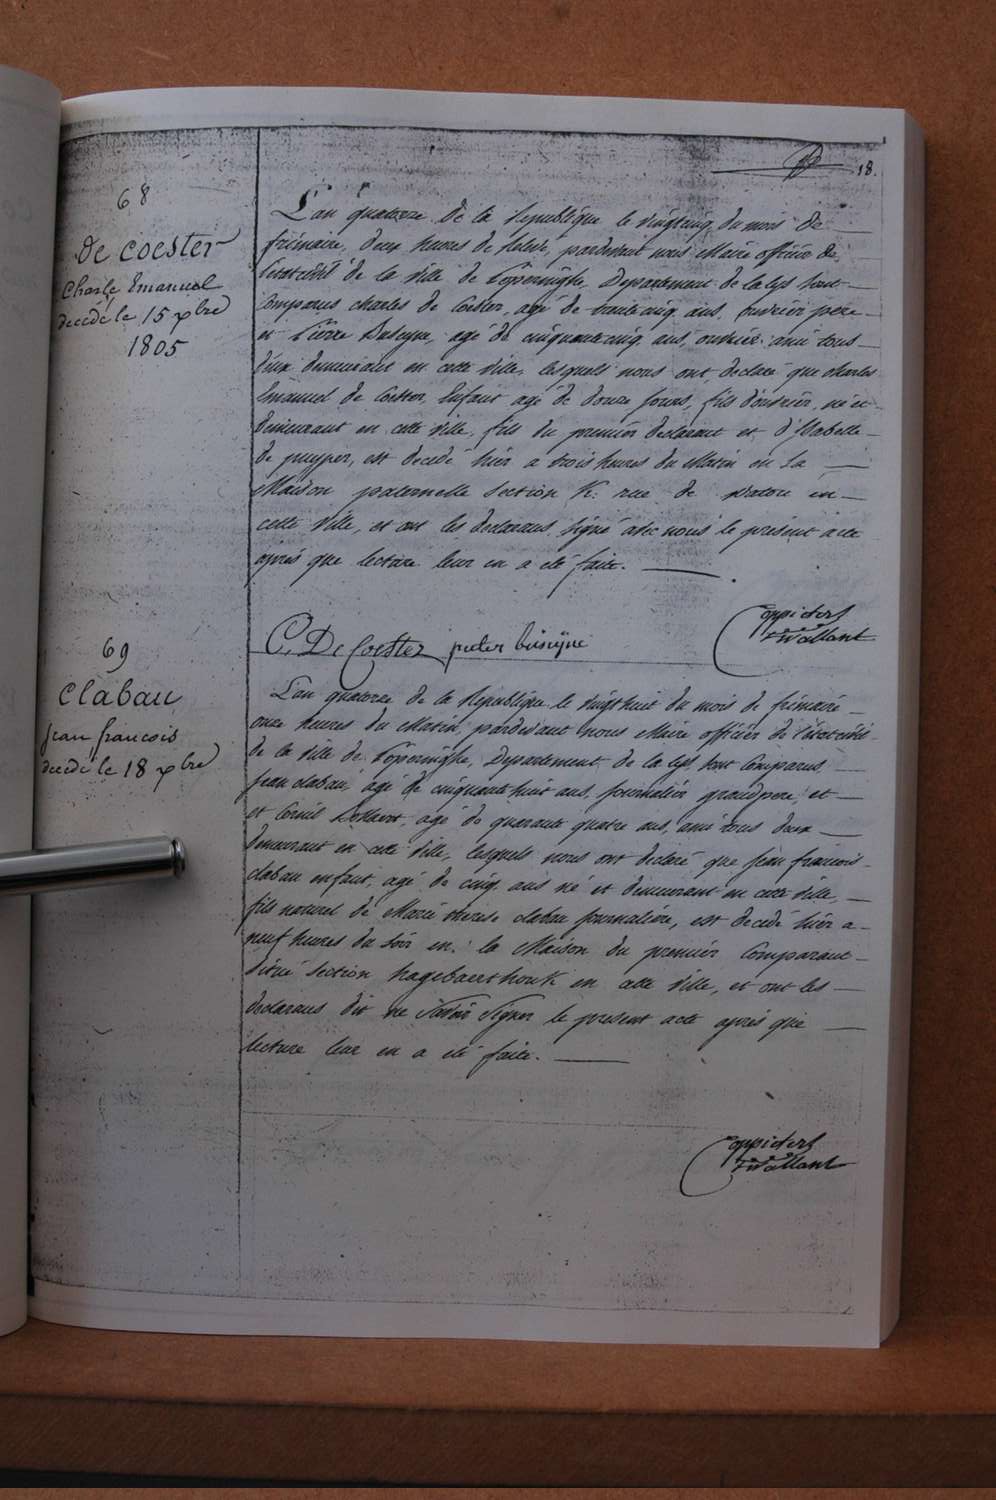 18.
68
De Coester
Charle Emanuel
decedé le 15 xbre
1805
L'an quatorze de la Republique le vingtcinq du mois de
frimaire, deux heures de relevé, pardevant nous Maire officier de
l'etat civil de la ville de Poperinghe, Departement de la Lys sont
comparus charles de Coester, agé de trente cinq ans, ouvrier pere
et Pierre Buseyne, agé de cinquante cinq ans, ouvrier ami tous
deux demeurant en cette ville, lesquels nous ont declaré que charles
Emanuel de Coester, Enfant agé de douze jours, fils d'ouvrier, né et
demeurant en cette ville, fils du premier declarant et d'Isabelle
de puyper, est decedé hier a trois heures du Matin en sa
Maison paternelle Section K. rue de watou en
cette ville, et ont les declarans signé avec nous le present acte
après que lecture leur en a été faite.
C. De Coester pieter buseÿne
Coppieters
Wallant
69
Clabau
Jean francois
decedé le 18 xbre
L'an quatorze de la Republique le vingthuit du mois de frimaire
onze heures du Matin pardevant nous Maire officier de l'état civil
de la ville de Poperinghe, Departement de la Lys, sont Comparus,
Jean clabau, agé de cinquante huit ans, journalier grandpere, et
et Cornil agé de quarante quatre ans, ami tous deux
demeurant en cette ville, lesquels nous ont declaré que Jean francois
clabau enfant, agé de cinq ans né et demeurant en cette ville,
fils naturel de Marie therese clabau journalière, est decedé hier a
neuf heures du soir en la Maison du premier Comparant
situé Section hagebaerthouk en cette ville, et ont les
declarans dit ne savoir signer le present acte après que
lecture leur en a été faite.
Coppieters
Wallant